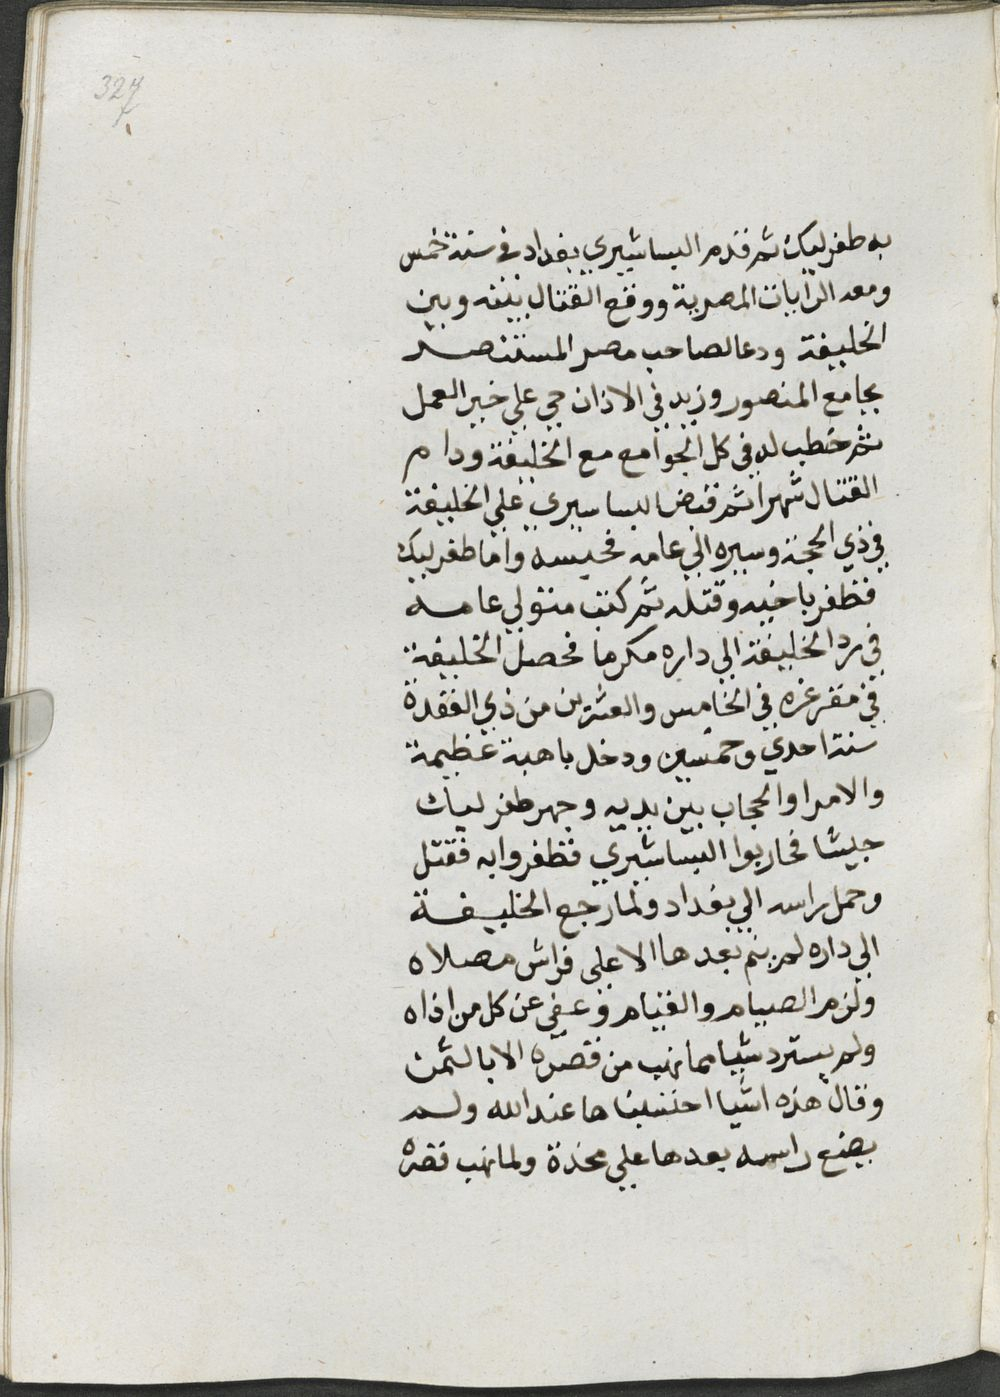 327
به طغرلبك ثم قدم البساسيري بغداد في سنة خمس
ومعه الرايات المصرية ووقع القتال بينه وبين
الخليفة ودعا لصاحب مصر المستنصر
بجامع المنصور وزيد في الاذان حي علي خير العمل
ثم خطب له في كل الجوامع مع الخليفة ودام
القتال شهرا ثم قبض البساسيري علي الخليفة
في ذي الحجة وسيره الي عامه فحبسه واما طغرلبك
فظفر باخيه وقتله ثم كتب متولي عامه
في رد الخليفة الي داره مكرما فحصل الخليفة
في مقر عزه في الخامس والعشرين من ذي القعدة
سنة احدي وخمسين ودخل باهبة عظيمة
والامرا والحجاب بين يديه وجهز طغرلبك
جيشا فحاربوا البساشيري فظفروا به فقتل
وحمل راسه الي بغداد ولما رجع الخليفة
الي داره لم ينم بعدها الا علي فراش مصلاه
ولزم الصيام والقيام وعفي عن كل من اذاه
ولم يسترد شيا مما نهب من قصره الا بالثمن
وقال هذه اشيا احتسبناها عند الله ولم
يضع راسه بعدها علي مخدة ولما نهب قصره